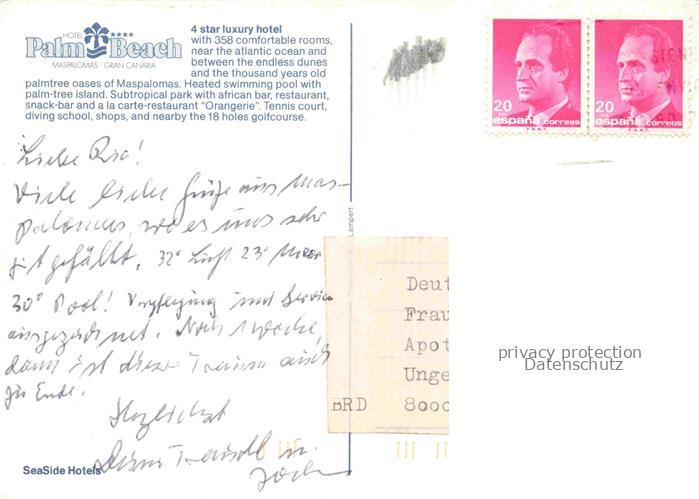 HOTEL
Palm Beach
MASPALOMAS · GRAN CANARIA
4 star luxury hotel
with 358 comfortable rooms,
near the atlantic ocean and
between the endless dunes
and the thousand years old
palmtree oases of Maspalomas. Heated swimming pool with
palm-tree island. Subtropical park with african bar, restaurant,
snack-bar and a la carte-restaurant "Orangerie". Tennis court,
diving school, shops, and nearby the 18 holes golfcourse.
Liebe
Viele liebe Grüße aus Mas-
palomas, wo es uns sehr
gut gefällt. 32° Luft 23° Meer
30° Pool! Verpflegung und Service
ausgezeichnet. Noch 1 Woche,
dann ist dieser Traum auch
zu Ende.
Herzlichst
u.
SeaSide Hotels
Lampert
20
españa correos
F.N.M.T.
20
españa correos
F.N.M.T.
Deut
Frau
Apot
Unge
BRD 8000
privacy protection
Datenschutz